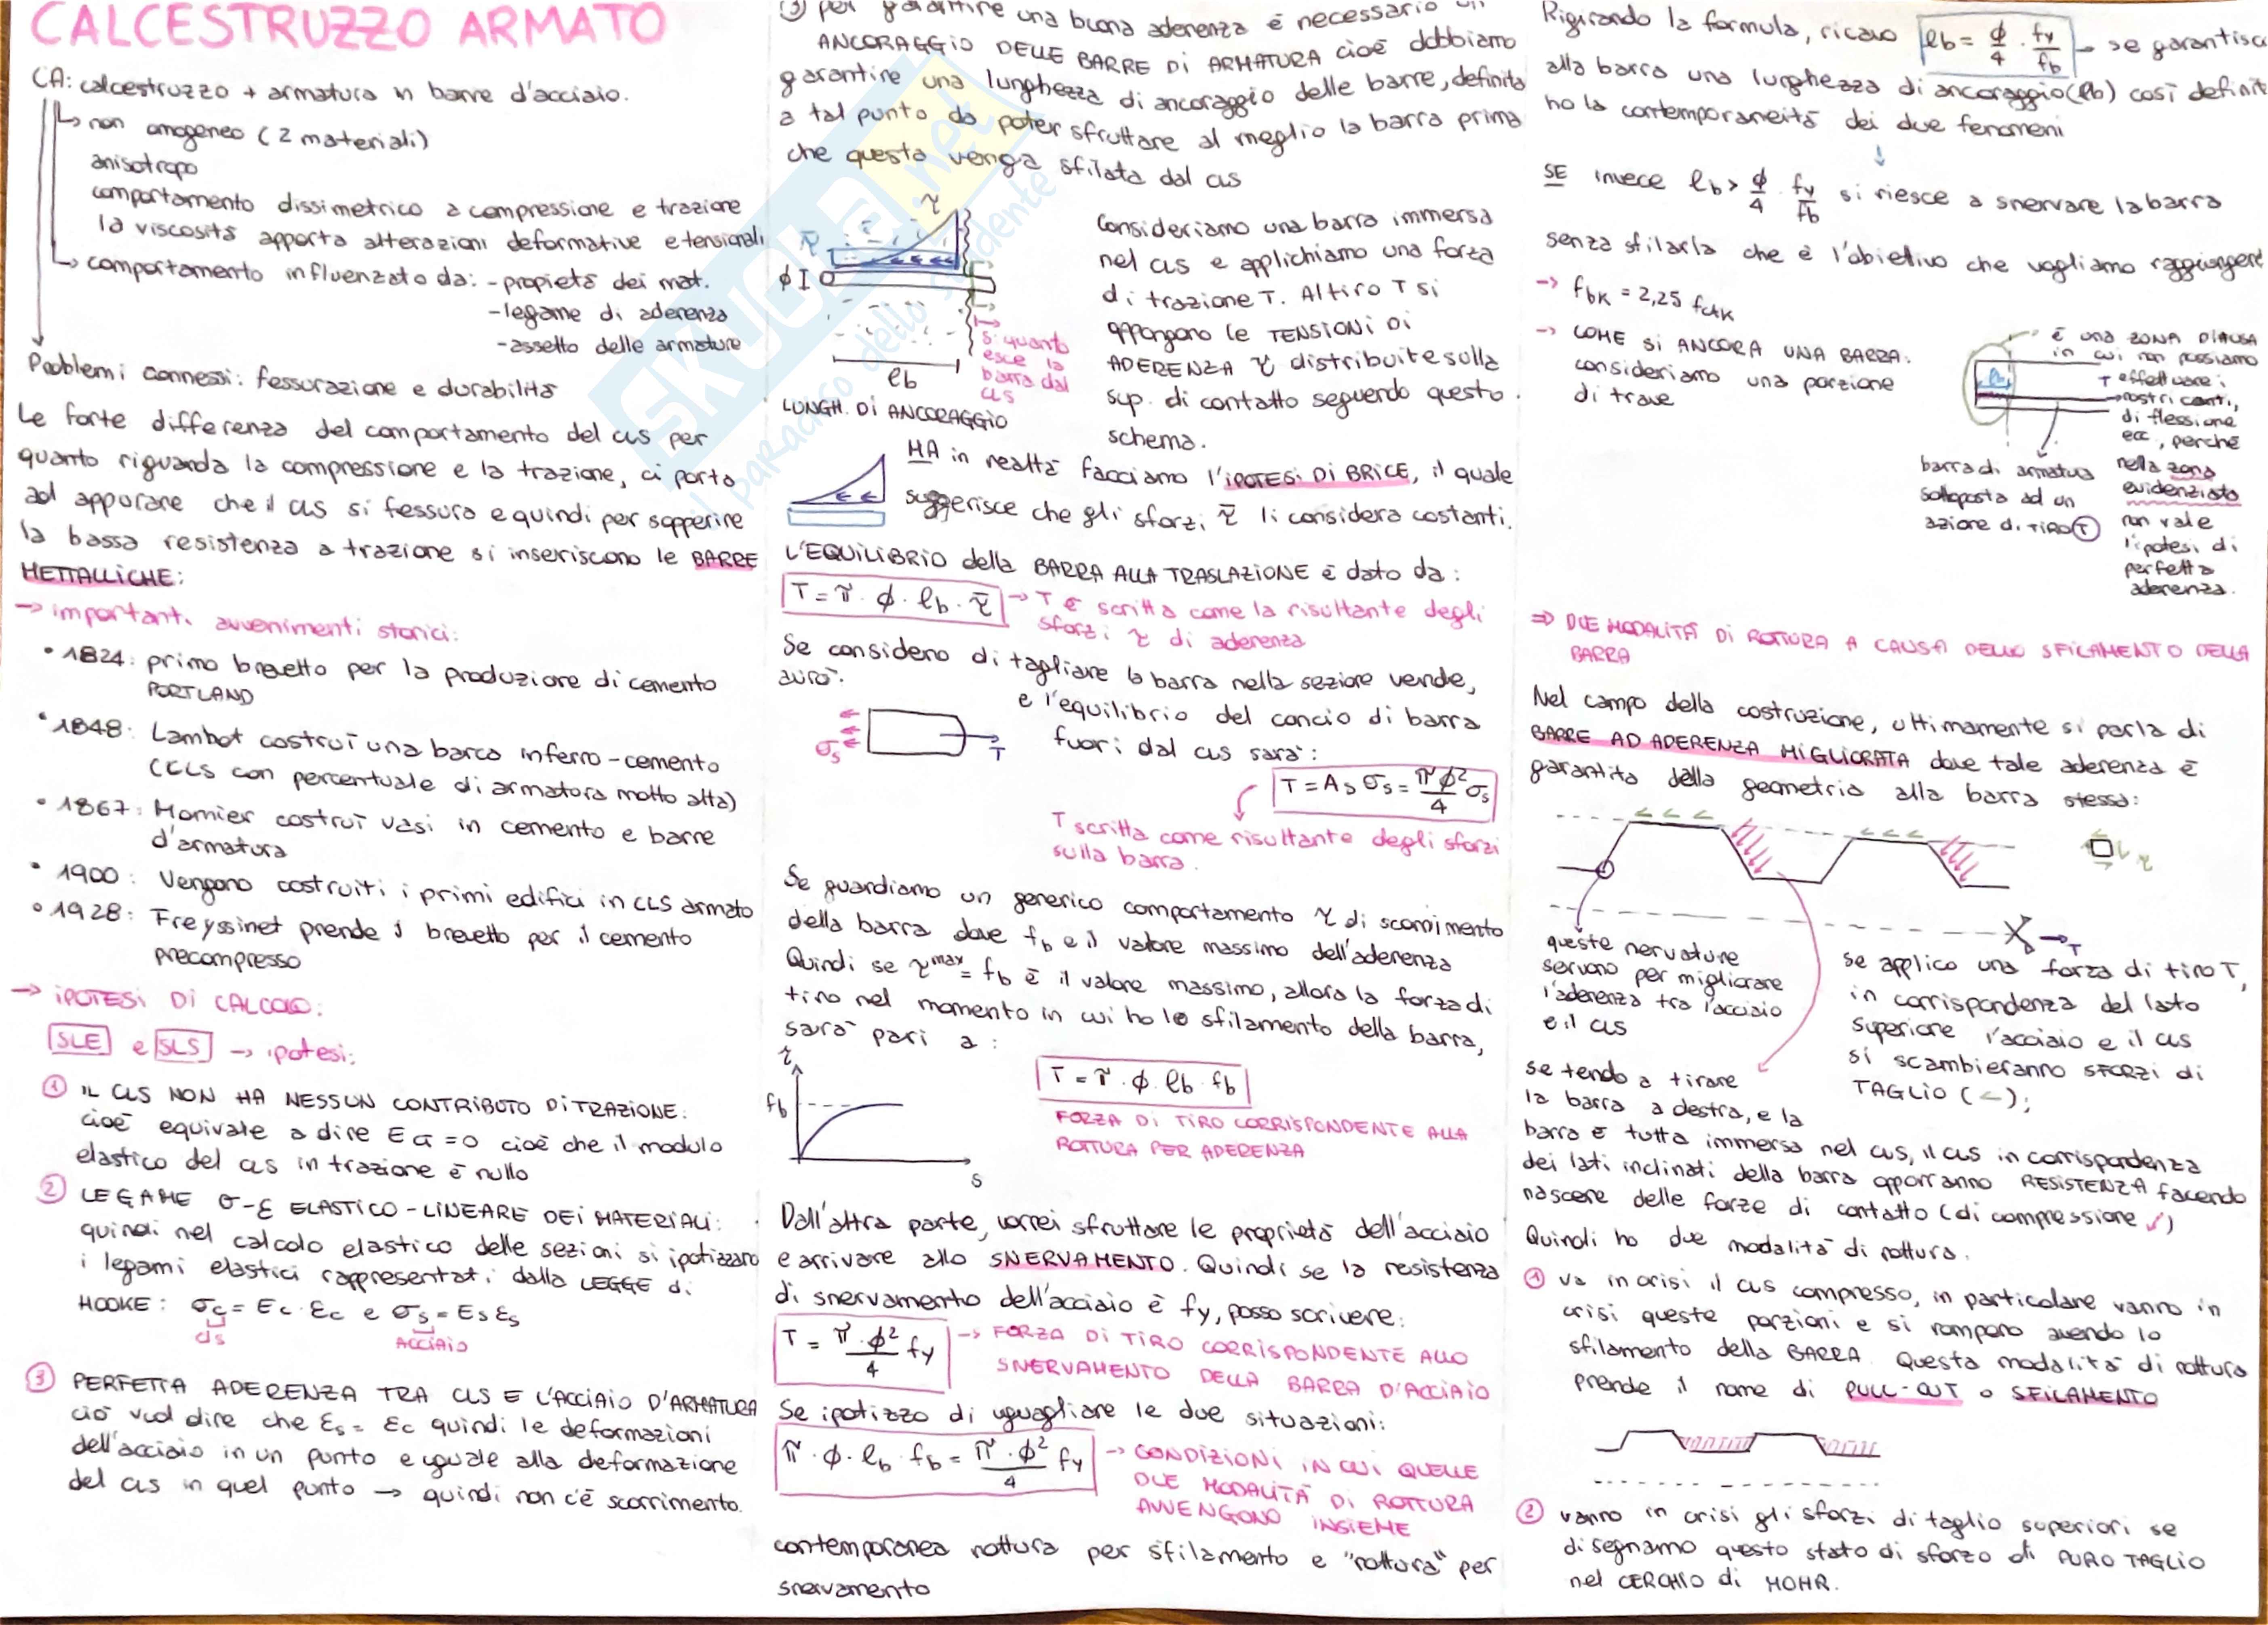 CALCESTRUZZO ARMATO
CA: calcestruzzo + armatura in barre d'acciaio.
↳ non omogeneo (2 materiali)
anisotropo
comportamento dissimetrico a compressione e trazione
la viscosità apporta alterazioni deformative e tensionali
↳ comportamento influenzato da: - propietà dei mat.
- legame di aderenza
- assetto delle armature
Problemi connessi: fessurazione e durabilità
Le forte differenza del comportamento del cls per
quanto riguarda la compressione e la trazione, ci porta
ad appurare che il cls si fessura e quindi per sopperire
la bassa resistenza a trazione si inseriscono le BARRE
METALLICHE:
→ importanti avvenimenti storici:
• 1824: primo brevetto per la produzione di cemento
PORTLAND
• 1848: Lambot costruì una barca in ferro-cemento
(CLS con percentuale di armatura molto alta)
• 1867: Monier costruì vasi in cemento e barre
d'armatura
• 1900: Vengono costruiti i primi edifici in CLS armato
• 1928: Freyssinet prende il brevetto per il cemento
precompresso
→ IPOTESI DI CALCOLO:
SLE e SLS → ipotesi:
① IL CLS NON HA NESSUN CONTRIBUTO DI TRAZIONE:
cioè equivale a dire Ect = 0 cioè che il modulo
elastico del cls in trazione è nullo
② LEGAME σ-ε ELASTICO-LINEARE DEI MATERIALI:
quindi nel calcolo elastico delle sezioni si ipotizzano
i legami elastici rappresentati dalla LEGGE di
HOOKE: σc = Ec · εc e σs = Es εs
cls ACCIAIO
③ PERFETTA ADERENZA TRA CLS E L'ACCIAIO D'ARMATURA
ciò vuol dire che εs = εc quindi le deformazioni
dell'acciaio in un punto e uguale alla deformazione
del cls in quel punto → quindi non c'è scorrimento.
③ per garantire una buona aderenza è necessario un
ANCORAGGIO DELLE BARRE DI ARMATURA cioè dobbiamo
garantire una lunghezza di ancoraggio delle barre, definita
a tal punto da poter sfruttare al meglio la barra prima
che questa venga sfilata dal cls
τ
τ̄
ϕ
lb
LUNGH. DI ANCORAGGIO
S: quanto
esce la
barra dal
cls
Consideriamo una barra immersa
nel cls e applichiamo una forza
di trazione T. Al tiro T si
oppongono le TENSIONI DI
ADERENZA τ distribuite sulla
sup. di contatto seguendo questo
schema.
MA in realtà facciamo l'IPOTESI DI BRICE, il quale
suggerisce che gli sforzi τ̄ li considera costanti.
L'EQUILIBRIO della BARRA ALLA TRASLAZIONE è dato da:
T = π · ϕ · lb · τ̄ → T è scritta come la risultante degli
sforzi τ di aderenza
Se considero di tagliare la barra nella sezione verde,
avrò:
e l'equilibrio del concio di barra
fuori dal cls sarà:
σs T
T = As σs = πϕ²/4 σs
T scritta come risultante degli sforzi
sulla barra.
Se guardiamo un generico comportamento τ di scorrimento
della barra dove fb e il valore massimo dell'aderenza
Quindi se τmax = fb è il valore massimo, allora la forza di
tiro nel momento in cui ho lo sfilamento della barra,
sarà pari a:
τ
fb
s
T = π · ϕ · lb · fb
FORZA DI TIRO CORRISPONDENTE ALLA
ROTTURA PER ADERENZA
Dall'altra parte, vorrei sfruttare le proprietà dell'acciaio
e arrivare allo SNERVAMENTO. Quindi se la resistenza
di snervamento dell'acciaio è fy, posso scrivere:
T = π · ϕ²/4 fy → FORZA DI TIRO CORRISPONDENTE ALLO
SNERVAMENTO DELLA BARRA D'ACCIAIO
Se ipotizzo di uguagliare le due situazioni:
π · ϕ · lb · fb = π · ϕ²/4 fy → CONDIZIONI IN CUI QUELLE
DUE MODALITÀ DI ROTTURA
AVVENGONO INSIEME
contemporanea rottura per sfilamento e "rottura" per
snervamento
Rigirando la formula, ricavo lb = ϕ/4 · fy/fb → se garantisco
alla barra una lunghezza di ancoraggio (lb) così definita
ho la contemporaneità dei due fenomeni
SE invece lb > ϕ/4 · fy/fb si riesce a snervare la barra
senza sfilarla che è l'obiettivo che vogliamo raggiungere
→ fbk = 2,25 fctk
→ COME SI ANCORA UNA BARRA:
consideriamo una porzione
di trave
lb
T
è una ZONA DIFFUSA
in cui non possiamo
effettuare i
nostri conti,
di flessione
ecc., perché
nella zona
evidenziata
non vale
l'ipotesi di
perfetta
aderenza.
barra di armatura
sottoposta ad un
azione di TIRO T
⇒ DUE MODALITÀ DI ROTTURA A CAUSA DELLO SFILAMENTO DELLA
BARRA
Nel campo della costruzione, ultimamente si parla di
BARRE AD ADERENZA MIGLIORATA dove tale aderenza è
garantita dalla geometria alla barra stessa:
τ
T
queste nervature
servono per migliorare
l'aderenza tra l'acciaio
e il cls
se applico una forza di tiro T,
in corrispondenza del lato
superiore l'acciaio e il cls
si scambieranno SFORZI di
TAGLIO (←);
se tendo a tirare
la barra a destra, e la
barra è tutta immersa nel cls, il cls in corrispondenza
dei lati inclinati della barra opporranno RESISTENZA facendo
nascere delle forze di contatto (di compressione ↙)
Quindi ho due modalità di rottura.
① va in crisi il cls compresso, in particolare vanno in
crisi queste porzioni e si rompano avendo lo
sfilamento della BARRA. Questa modalità di rottura
prende il nome di PULL-OUT o SFILAMENTO
② vanno in crisi gli sforzi di taglio superiori se
disegnamo questo stato di sforzo di PURO TAGLIO
nel CERCHIO di MOHR.
SKUOLA.net
il paradiso dello studente